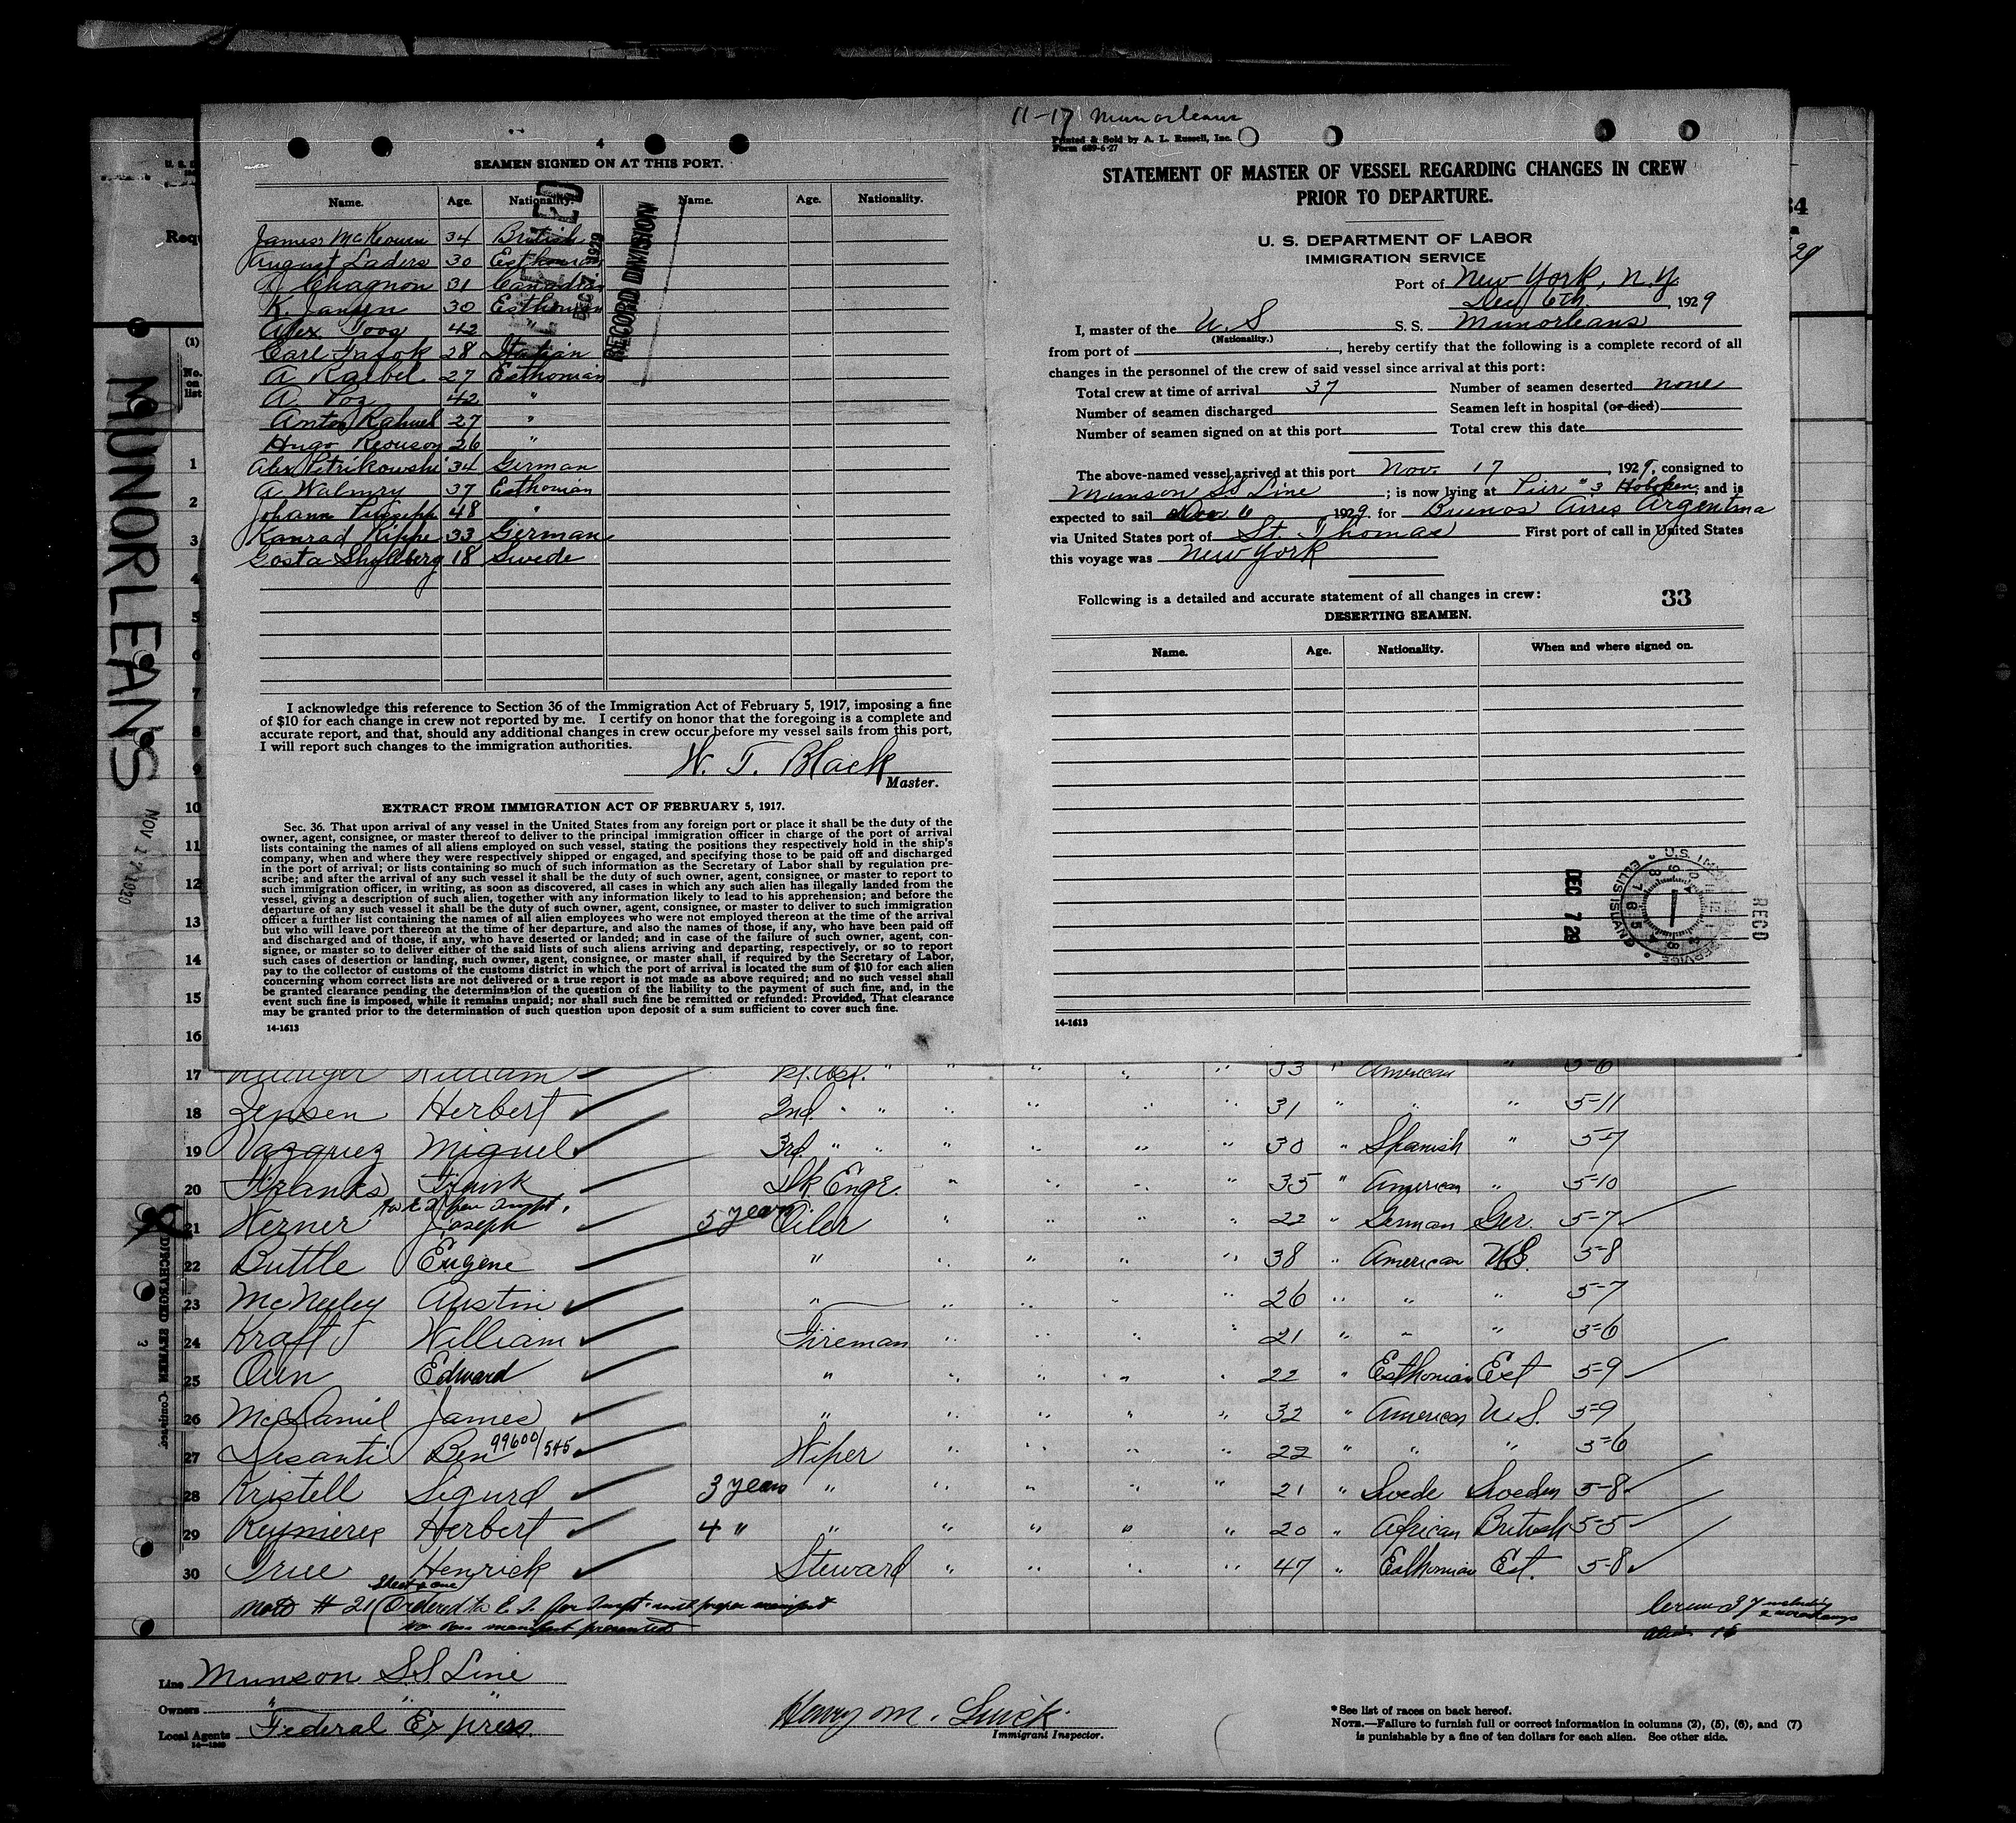 4
SEAMEN SIGNED ON AT THIS PORT.
Name. Age. Nationality. Name. Age. Nationality.
James McKeown 34 British
August Laders 30 Esthonian
A Chagnon 31 Canadian
K. Jansen 30 Esthonian
Alex Toog 42
Carl 28 Italian
A Raebel 27 Esthonian
A 42 "
Anton Rahuel 27 "
Hugo 26 "
Alex Petrikowski 34 German
A Walmry 37 Esthonian
Johann 48 "
Konrad Kippe 33 German
Gosta Shyllberg 18 Swede
RECORD DIVISION
I acknowledge this reference to Section 36 of the Immigration Act of February 5, 1917, imposing a fine
of $10 for each change in crew not reported by me. I certify on honor that the foregoing is a complete and
accurate report, and that, should any additional changes in crew occur before my vessel sails from this port,
I will report such changes to the immigration authorities.
W. T. Black
Master.
EXTRACT FROM IMMIGRATION ACT OF FEBRUARY 5, 1917.
Sec. 36. That upon arrival of any vessel in the United States from any foreign port or place it shall be the duty of the
owner, agent, consignee, or master thereof to deliver to the principal immigration officer in charge of the port of arrival
lists containing the names of all aliens employed on such vessel, stating the positions they respectively hold in the ship's
company, when and where they were respectively shipped or engaged, and specifying those to be paid off and discharged
in the port of arrival; or lists containing so much of such information as the Secretary of Labor shall by regulation pre-
scribe; and after the arrival of any such vessel it shall be the duty of such owner, agent, consignee, or master to report to
such immigration officer, in writing, as soon as discovered, all cases in which any such alien has illegally landed from the
vessel, giving a description of such alien, together with any information likely to lead to his apprehension; and before the
departure of any such vessel it shall be the duty of such owner, agent, consignee, or master to deliver to such immigration
officer a further list containing the names of all alien employees who were not employed thereon at the time of the arrival
but who will leave port thereon at the time of her departure, and also the names of those, if any, who have been paid off
and discharged and of those, if any, who have deserted or landed; and in case of the failure of such owner, agent, con-
signee, or master so to deliver either of the said lists of such aliens arriving and departing, respectively, or so to report
such cases of desertion or landing, such owner, agent, consignee, or master shall, if required by the Secretary of Labor,
pay to the collector of customs of the customs district in which the port of arrival is located the sum of $10 for each alien
concerning whom correct lists are not delivered or a true report is not made as above required; and no such vessel shall
be granted clearance pending the determination of the question of the liability to the payment of such fine, and, in the
event such fine is imposed, while it remains unpaid; nor shall such fine be remitted or refunded: Provided, That clearance
may be granted prior to the determination of such question upon deposit of a sum sufficient to cover such fine.
14-1613
11-17 Munorleans
Printed & Sold by A. L. Russell, Inc.
Form 689-6-27
STATEMENT OF MASTER OF VESSEL REGARDING CHANGES IN CREW
PRIOR TO DEPARTURE.
U. S. DEPARTMENT OF LABOR
IMMIGRATION SERVICE
Port of New York, N.Y.
Dec 6th, 1929
I, master of the U.S S. S. Munorleans
(Nationality.)
from port of , hereby certify that the following is a complete record of all
changes in the personnel of the crew of said vessel since arrival at this port:
Total crew at time of arrival 37 Number of seamen deserted none
Number of seamen discharged Seamen left in hospital (or died)
Number of seamen signed on at this port Total crew this date
The above-named vessel arrived at this port Nov. 17, 1929, consigned to
Munson SS Line; is now lying at Pier #3 Hoboken, and is
expected to sail Dec 6 1929, for Buenos Aires Argentina
via United States port of St. Thomas First port of call in United States
this voyage was New York
Following is a detailed and accurate statement of all changes in crew: 33
DESERTING SEAMEN.
Name. Age. Nationality. When and where signed on.
DEC 7 29
RECD
ELLIS ISLAND
14-1613
MUNORLEANS
(1)
No. on list
1
2
3
4
5
6
7
8
9
10
11
12
13
14
15
16
17 William 1st Asst. " " " " " 33 " American " 5-6
18 Jensen Herbert 2nd " " " " " " 31 " " " 5-11
19 Vazquez Miguel 3rd " " " " " " 30 " Spanish " 5-7
20 Franks Frank Dk. Engr. " " " " 35 " American " 5-10
21 Werner Joseph 5 years Oiler " " " " 22 " German Ger. 5-7
22 Buttle Eugene " " " " " 38 " American U.S. 5-8
23 McNeeley Austin " " " " " 26 " " " 5-7
24 Kraft William Fireman " " " " 21 " " " 5-6
25 Oun Edward " " " " " 22 " Esthonian Est 5-9
26 McDaniel James " " " " " 32 " American U.S. 5-9
27 Desanti Ben 99600/545 Wiper " " " " 22 " " " 5-6
28 Kristell Sigurd 3 years " " " " " 21 " Swede Sweden 5-8
29 Reynieres Herbert 4 " " " " " " 20 " African British 5-5
30 True Henrick Steward " " " " 47 " Esthonian Est. 5-8
Note # 21 Sheet one Ordered to E. I. for Inspt. with proper manifest
manifest presented
Crew 37 including
Alien 16
Line Munson S.S Line
Owners " " "
Local Agents Federal Express
Henry M.
Immigrant Inspector.
* See list of races on back hereof.
NOTE.—Failure to furnish full or correct information in columns (2), (5), (6), and (7)
is punishable by a fine of ten dollars for each alien. See other side.